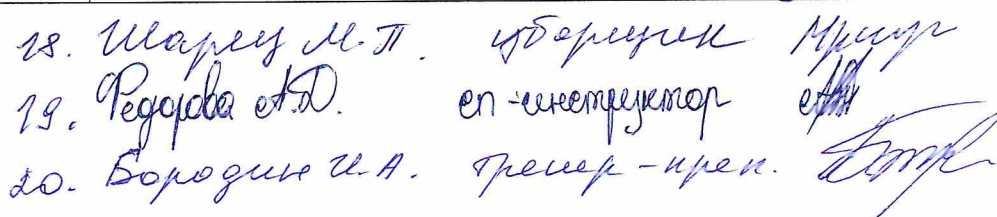 18. Шарец М.П. уборщик
19. Федорова А.Д. сп-инструктор
20. Бородин И.А. тренер-преп.